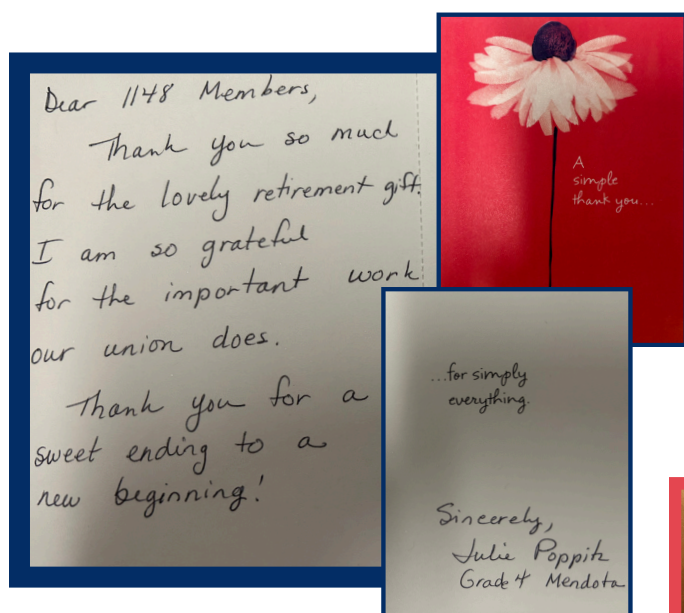 Dear 1148 Members,
Thank you so much
for the lovely retirement gift.
I am so grateful
for the important work
our union does.
Thank you for a
sweet ending to a
new beginning!
A
simple
thank you...
...for simply
everything.
Sincerely,
Julie Poppitz
Grade 4 Mendota